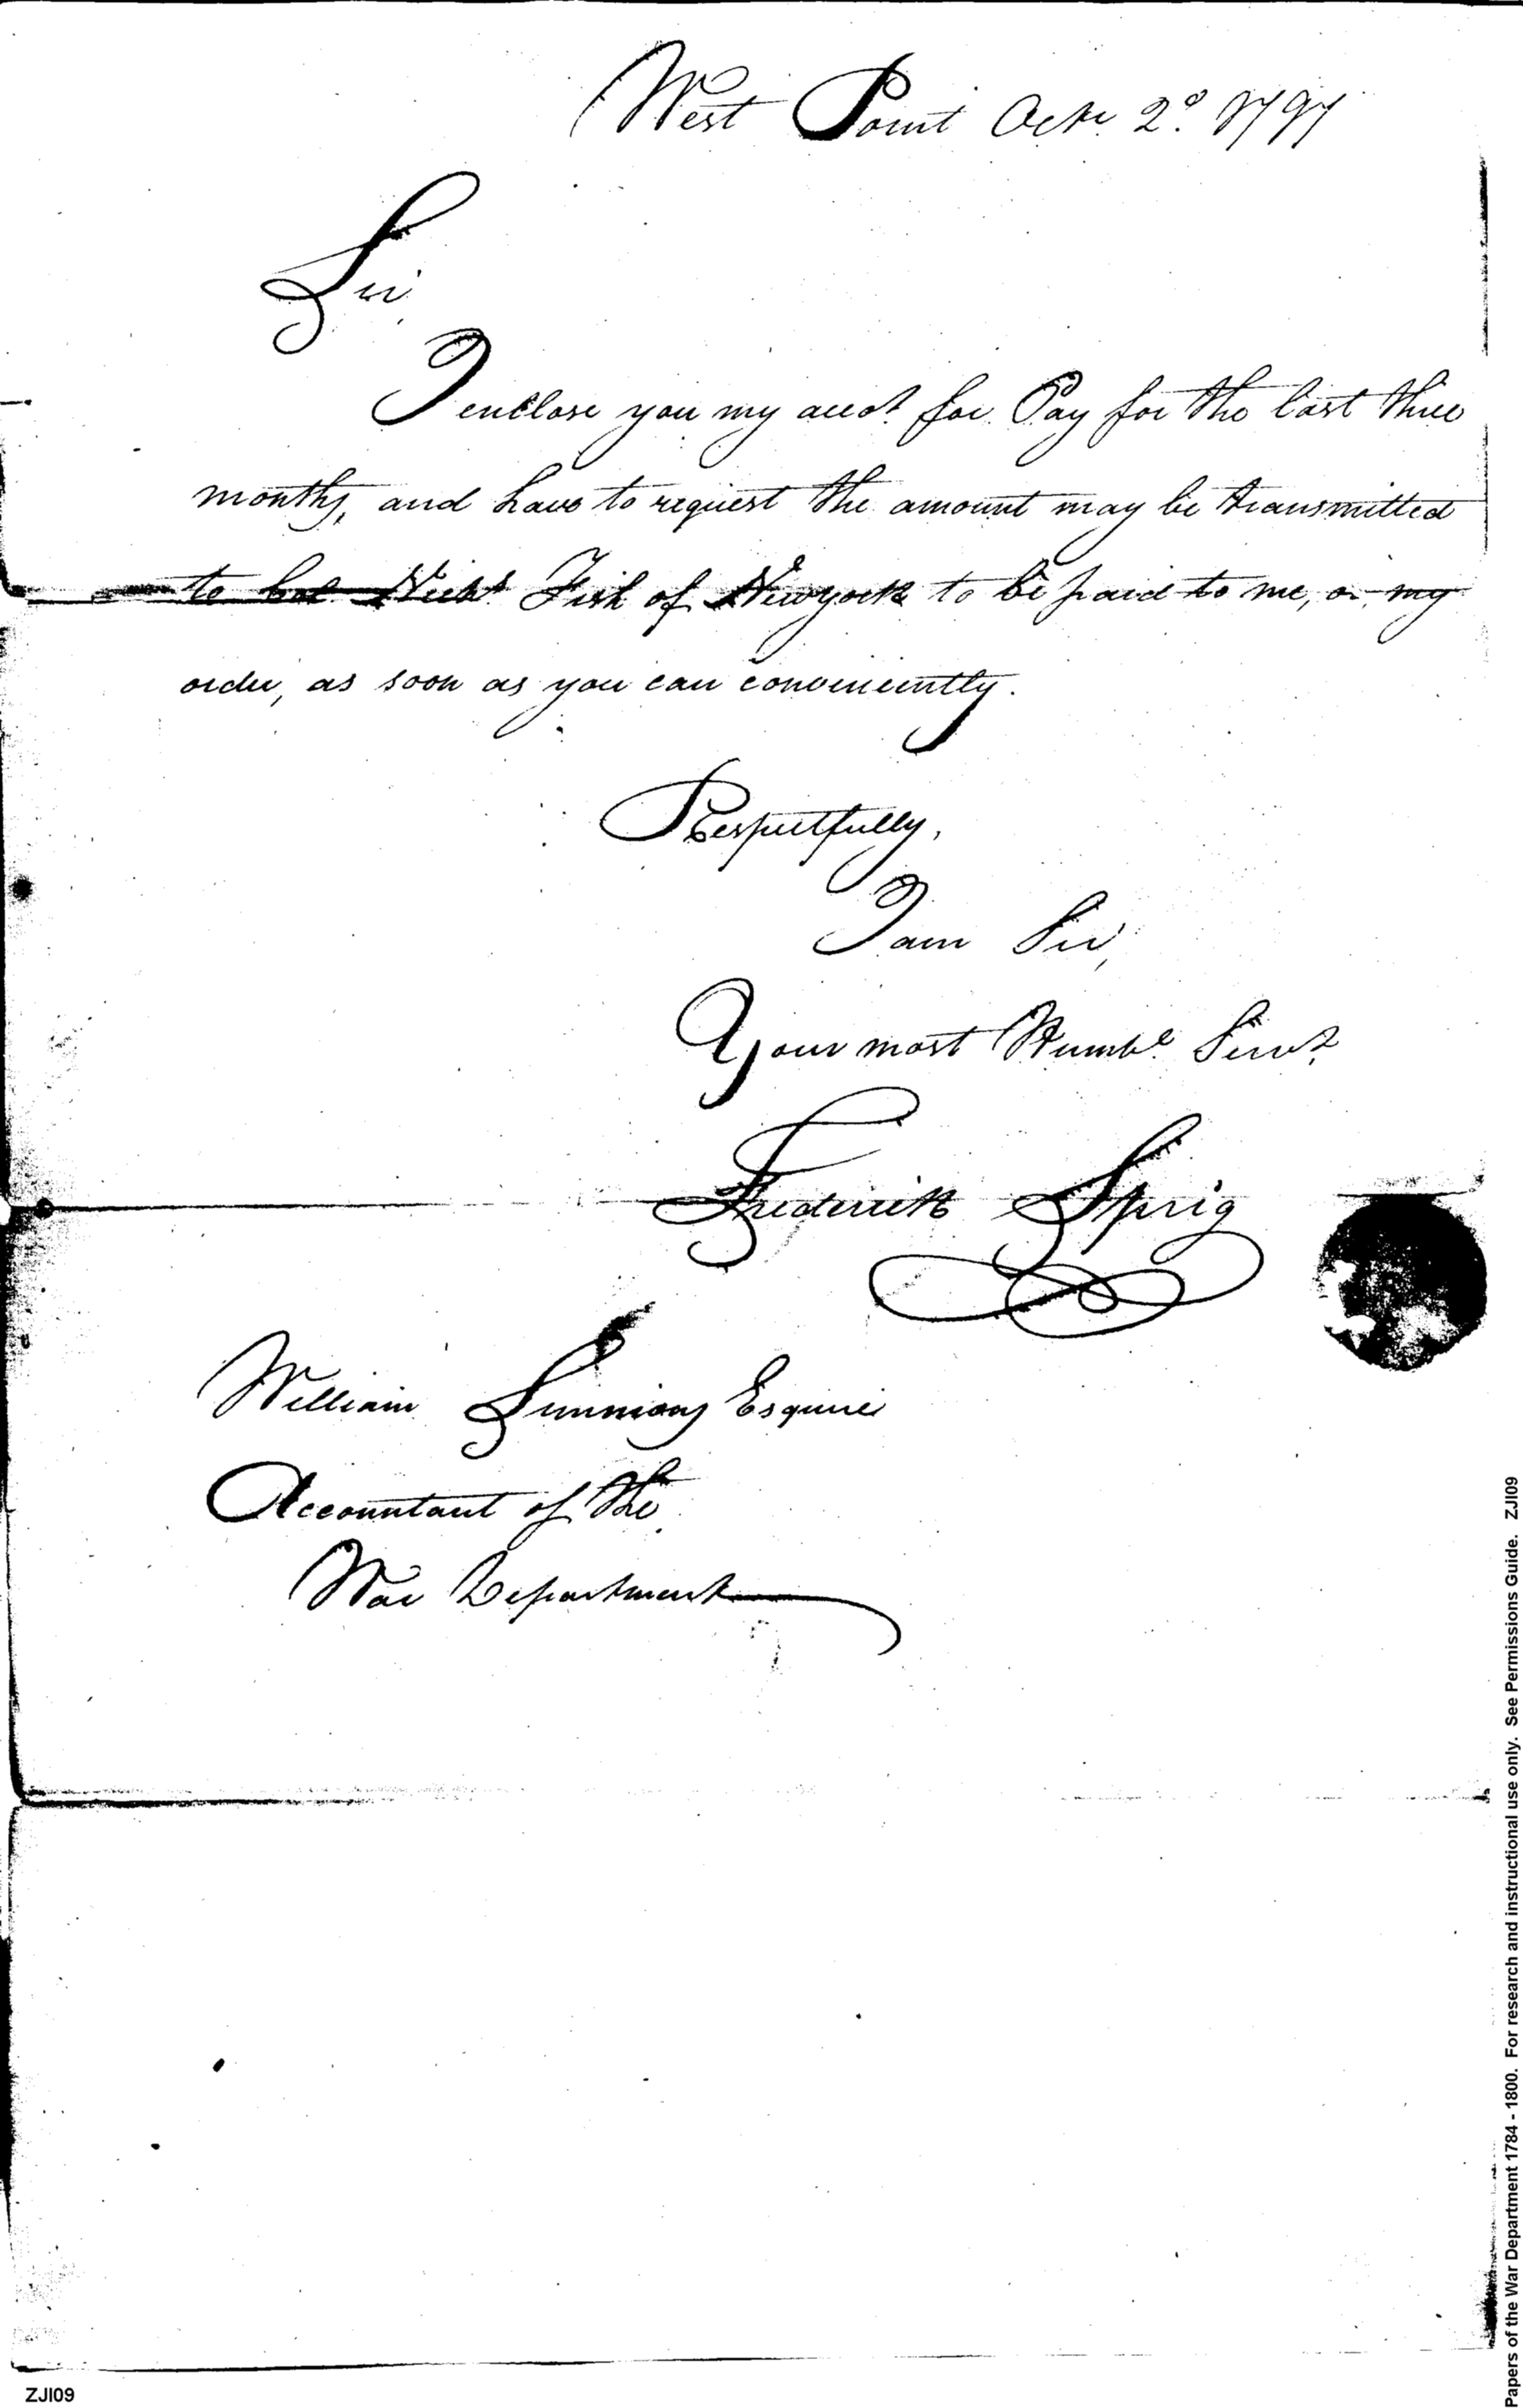 West Point Octr. 2d. 1797
Sir
I enclose you my acct. for Pay for the last three
months, and have to request the amount may be transmitted
to Col. Nichs. Fish of Newyork to be paid to me, or my
order, as soon as you can conveniently.
Respectfully,
I am Sir,
Your most Humbe. Servt.
Frederick Sprig
William Simmons Esquire
Accountant of the
War Department
Papers of the War Department 1784 - 1800. For research and instructional use only. See Permissions Guide. ZJI09
ZJI09